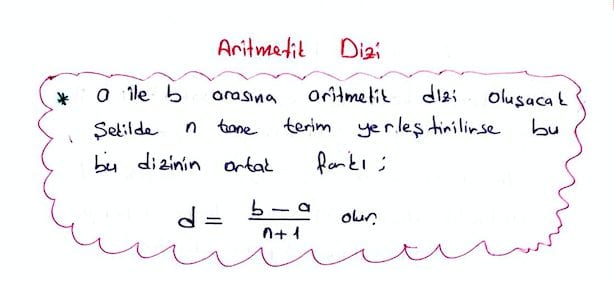 Aritmetik Dizi
* a ile b arasına aritmetik dizi oluşacak
Şekilde n tane terim yerleştirilirse bu
bu dizinin ortak farkı ;
d = \frac{b - a}{n+1} olur.